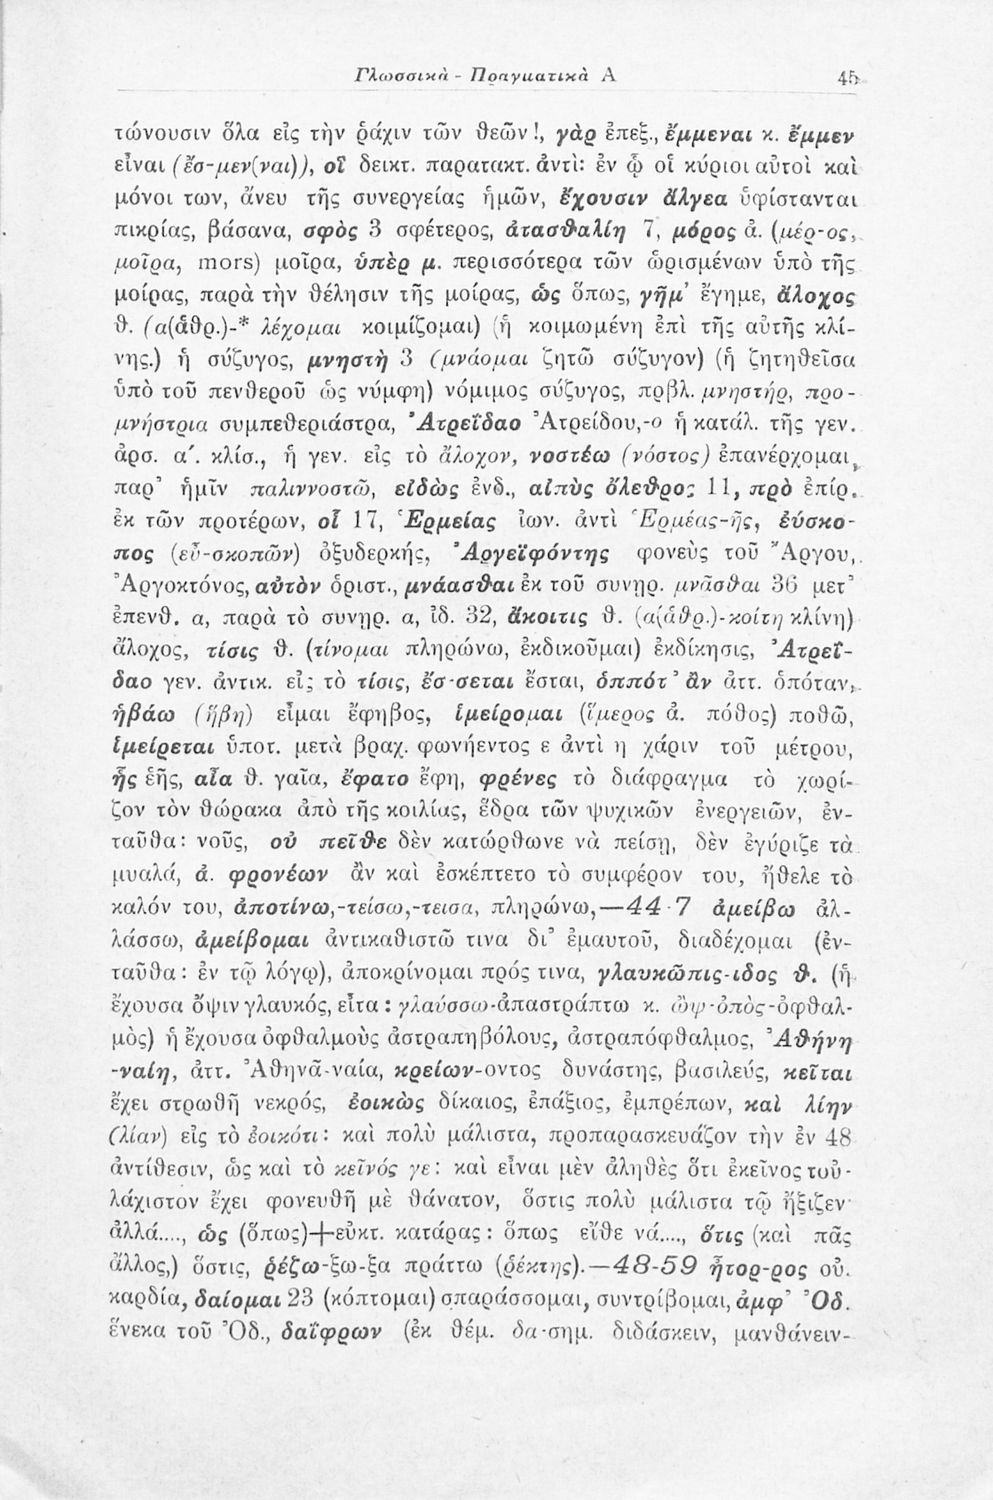 Γλωσσικὰ - Πραγματικὰ Α 45
τώνουσιν ὅλα εἰς τὴν ῥάχιν τῶν θεῶν!, γὰρ ἐπεξ., ἔμμεναι κ. ἔμμεν
εἶναι (ἔσ-μεν(ναι)), οἳ δεικτ. παρατακτ. ἀντὶ: ἐν ᾧ οἱ κύριοι αὐτοὶ καὶ
μόνοι των, ἄνευ τῆς συνεργείας ἡμῶν, ἔχουσιν ἄλγεα ὑφίστανται
πικρίας, βάσανα, σφὸς 3 σφέτερος, ἀτασθαλίη 7, μόρος ἀ. (μέρ-ος,
μοῖρα, mors) μοῖρα, ὑπὲρ μ. περισσότερα τῶν ὡρισμένων ὑπὸ τῆς
μοίρας, παρὰ τὴν θέλησιν τῆς μοίρας, ὡς ὅπως, γῆμ’ ἔγημε, ἄλοχος
θ. (α(ἀθρ.)-* λέχομαι κοιμίζομαι) (ἡ κοιμωμένη ἐπὶ τῆς αὐτῆς κλί-
νης.) ἡ σύζυγος, μνηστὴ 3 (μνάομαι ζητῶ σύζυγον) (ἡ ζητηθεῖσα
ὑπὸ τοῦ πενθεροῦ ὡς νύμφη) νόμιμος σύζυγος, πρβλ. μνηστήρ, προ-
μνήστρια συμπεθεριάστρα, Ἀτρεΐδαο Ἀτρείδου,-ο ἡ κατάλ. τῆς γεν.
ἀρσ. α΄. κλίσ., ἡ γεν. εἰς τὸ ἄλοχον, νοστέω (νόστος) ἐπανέρχομαι,
παρ’ ἡμῖν παλιννοστῶ, εἰδὼς ἐνδ., αἰπὺς ὄλεθρος 11, πρὸ ἐπίρ.
ἐκ τῶν προτέρων, οἷ 17, Ἑρμείας ἰων. ἀντὶ Ἑρμέας-ῆς, ἐύσκο-
πος (εὖ-σκοπῶν) ὀξυδερκής, Ἀργεϊφόντης φονεὺς τοῦ Ἄργου,
Ἀργοκτόνος, αὐτὸν ὁριστ., μνάασθαι ἐκ τοῦ συνῃρ. μνᾶσθαι 36 μετ’
ἐπενθ. α, παρὰ τὸ συνῃρ. α, ἰδ. 32, ἄκοιτις θ. (α(ἀθρ.)-κοίτη κλίνη)
ἄλοχος, τίσις θ. (τίνομαι πληρώνω, ἐκδικοῦμαι) ἐκδίκησις, Ἀτρεΐ-
δαο γεν. ἀντικ. εἰς τὸ τίσις, ἔσ-σεται ἔσται, ὁππότ’ ἂν ἀττ. ὁπόταν,
ἡβάω (ἥβη) εἶμαι ἔφηβος, ἱμείρομαι (ἵμερος ἀ. πόθος) ποθῶ,
ἱμείρεται ὑποτ. μετὰ βραχ. φωνήεντος ε ἀντὶ η χάριν τοῦ μέτρου,
ἧς ἑῆς, αἶα θ. γαῖα, ἔφατο ἔφη, φρένες τὸ διάφραγμα τὸ χωρί-
ζον τὸν θώρακα ἀπὸ τῆς κοιλίας, ἕδρα τῶν ψυχικῶν ἐνεργειῶν, ἐν-
ταῦθα: νοῦς, οὐ πεῖθε δὲν κατώρθωνε νὰ πείσῃ, δὲν ἐγύριζε τὰ
μυαλά, ἀ. φρονέων ἂν καὶ ἐσκέπτετο τὸ συμφέρον του, ἤθελε τὸ
καλόν του, ἀποτίνω,-τείσω,-τεισα, πληρώνω,—44-7 ἀμείβω ἀλ-
λάσσω, ἀμείβομαι ἀντικαθιστῶ τινα δι’ ἐμαυτοῦ, διαδέχομαι (ἐν-
ταῦθα: ἐν τῷ λόγῳ), ἀποκρίνομαι πρός τινα, γλαυκῶπις-ιδος θ. (ἡ
ἔχουσα ὄψιν γλαυκός, εἶτα: γλαύσσω-ἀπαστράπτω κ. ὢψ-ὀπὸς-ὀφθαλ-
μὸς) ἡ ἔχουσα ὀφθαλμοὺς ἀστραπηβόλους, ἀστραπόφθαλμος, Ἀθήνη
-ναίη, ἀττ. Ἀθηνᾶ-ναία, κρείων-οντος δυνάστης, βασιλεύς, κεῖται
ἔχει στρωθῆ νεκρός, ἐοικὼς δίκαιος, ἐπάξιος, ἐμπρέπων, καὶ λίην
(λίαν) εἰς τὸ ἐοικότι: καὶ πολὺ μάλιστα, προπαρασκευάζον τὴν ἐν 48
ἀντίθεσιν, ὡς καὶ τὸ κεῖνός γε: καὶ εἶναι μὲν ἀληθὲς ὅτι ἐκεῖνος τοὐ-
λάχιστον ἔχει φονευθῆ μὲ θάνατον, ὅστις πολὺ μάλιστα τῷ ἤξιζεν
ἀλλά...., ὡς (ὅπως)+εὐκτ. κατάρας: ὅπως εἴθε νά...., ὅτις (καὶ πᾶς
ἄλλος,) ὅστις, ῥέζω-ξω-ξα πράττω (ῥέκτης).—48-59 ἦτορ-ρος οὐ.
καρδία, δαίομαι 23 (κόπτομαι) σπαράσσομαι, συντρίβομαι, ἀμφ’ Ὀδ.
ἕνεκα τοῦ Ὀδ., δαΐφρων (ἐκ θέμ. δα-σημ. διδάσκειν, μανθάνειν-